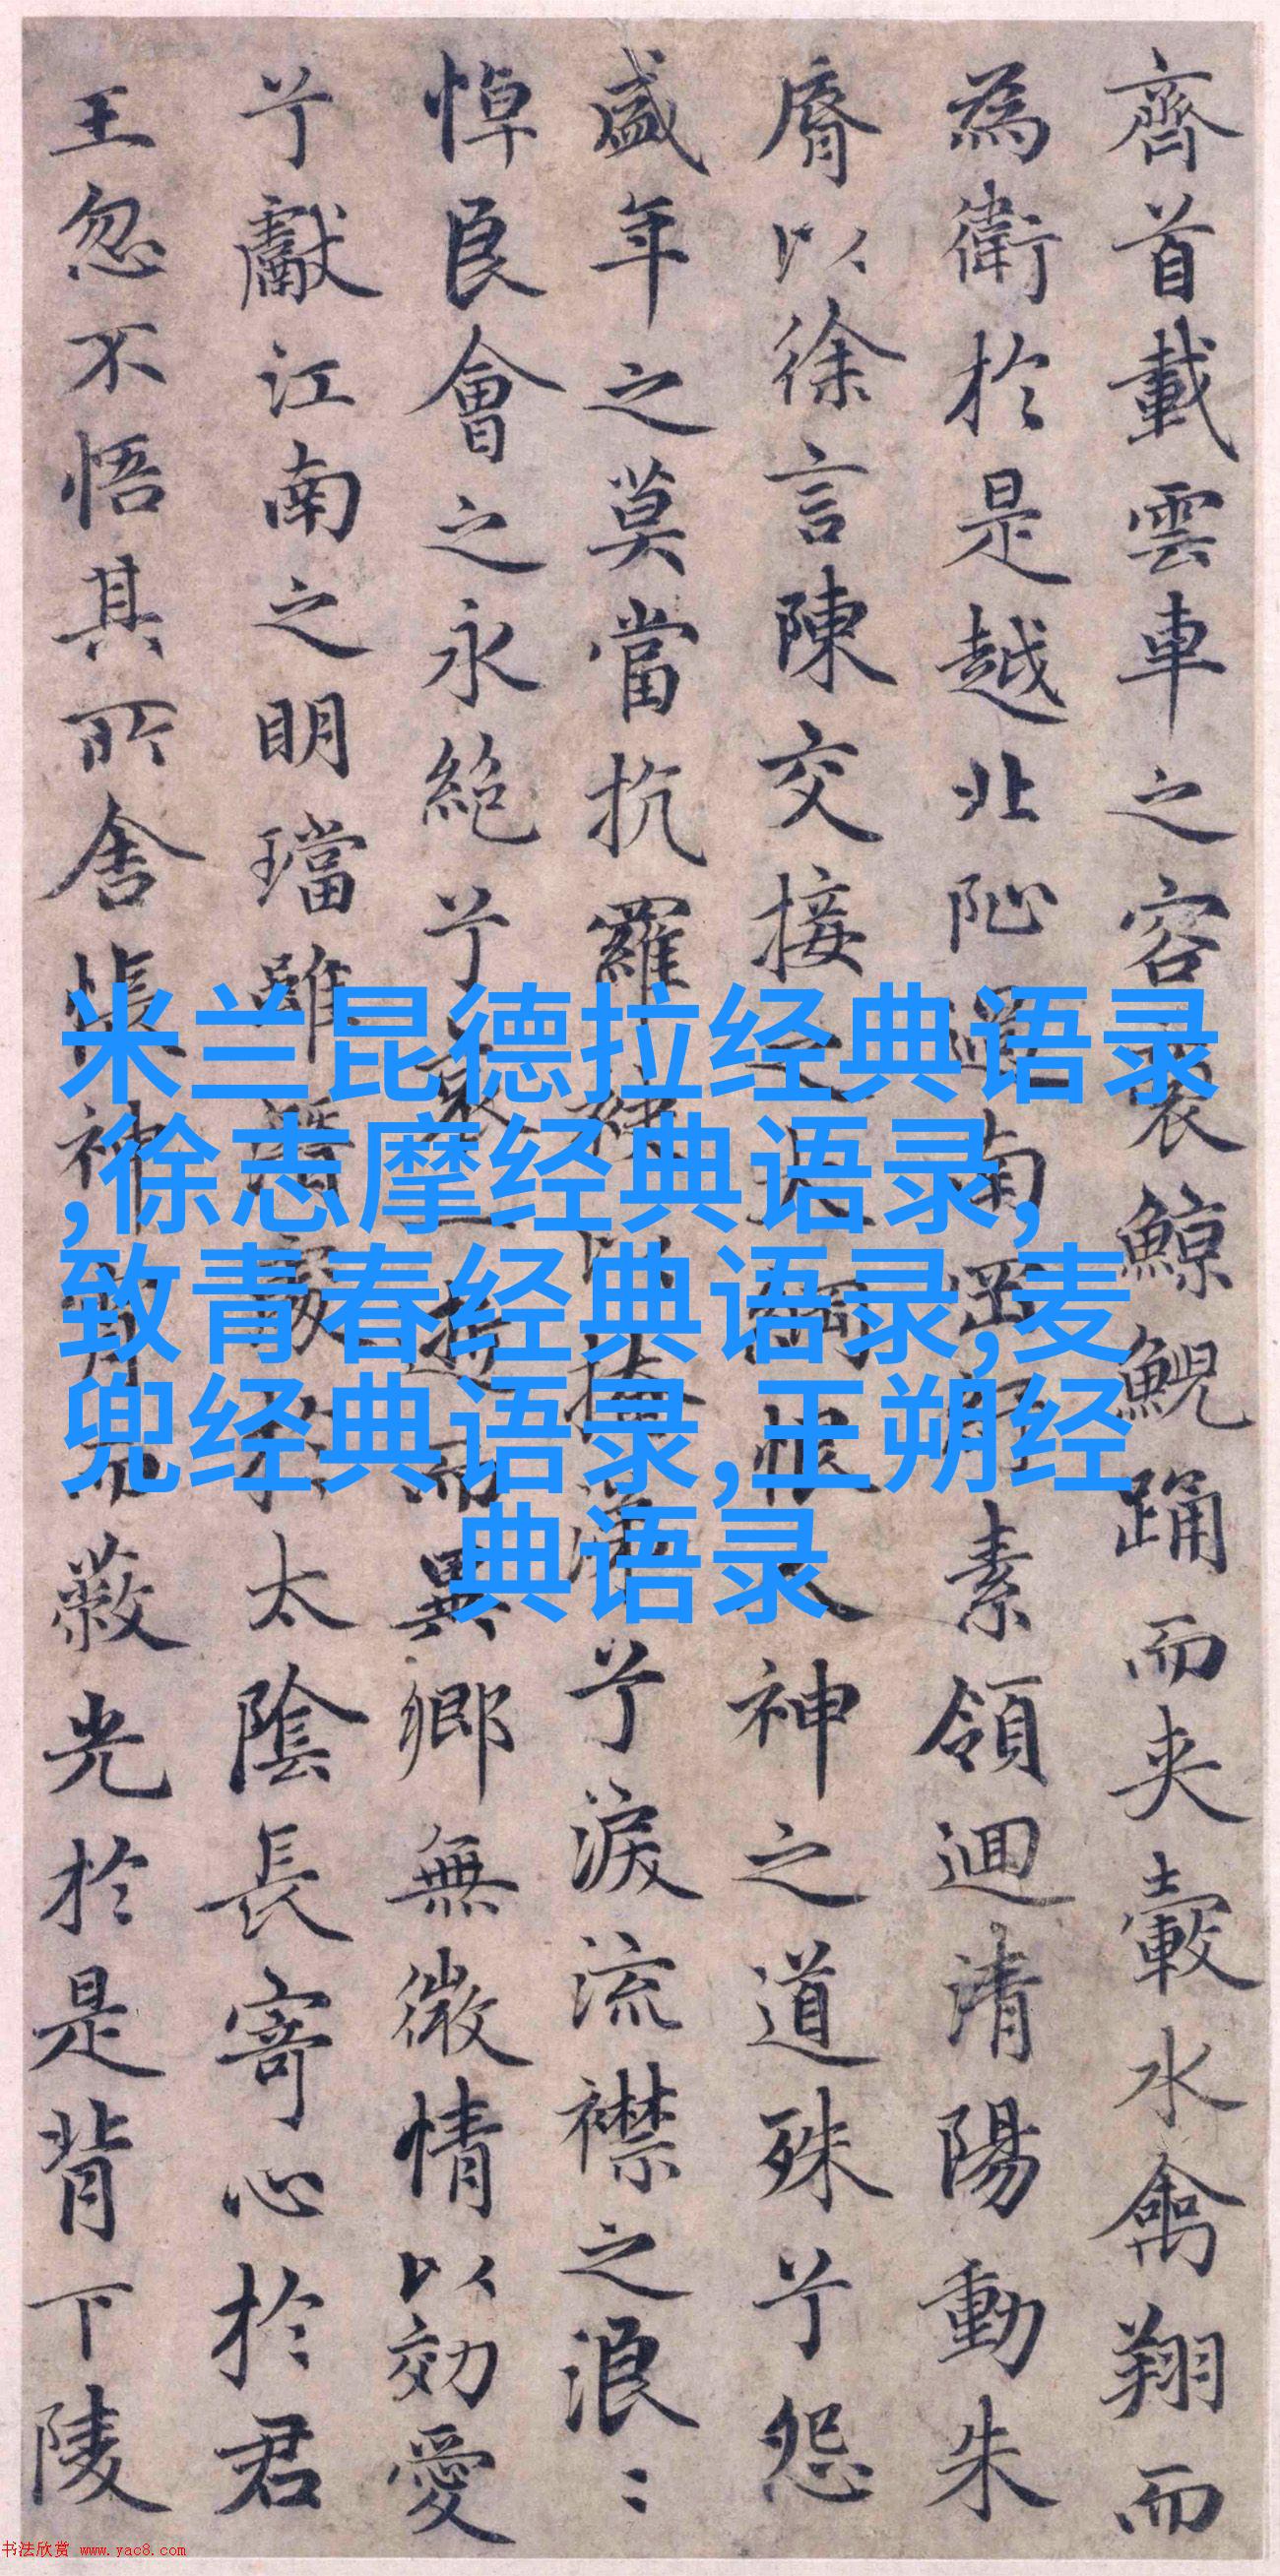 齊首載雲車之容裔鯨鯢踊而夾轂水禽翔而
為衛於是越北沚過南岡紆素領迴清陽動朱
脣以徐言陳交接之大綱恨人神之道殊兮怨
盛年之莫當抗羅袂以掩涕兮淚流襟之浪〻
悼良會之永絕兮哀一逝而異鄉無微情以効愛
兮獻江南之明璫雖潛處於太陰長寄心於君
王忽不悟其所舍悵神宵而蔽光於是背下陵
米兰昆德拉经典语录
,徐志摩经典语录,
致青春经典语录,麦
兜经典语录,王朔经
典语录
书法欣赏 www.yac8.com